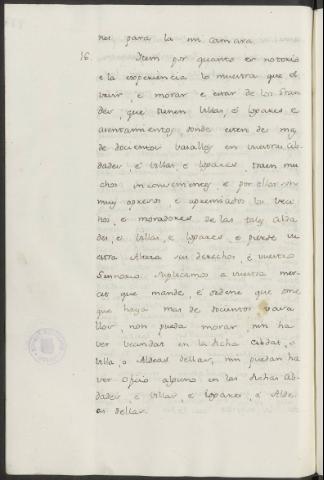 nes para la mi camara.
16. Item por quanto es notorio
e la experiencia lo muestra que el
vivir, e morar e estar de los Gran
des, que tienen villas, é logares e
asentamientos, donde esten de mas
de docientos vasallos en vuestras Cib
dades, e villas, e logares, traen mu
chos inconvenientes, e por ellos son
muy opresos, e apremiados los veci
nos, e moradores de las tales Cibda
des, é villas, e logares, e pierde vu
estra Alteza sus derechos, é vuestro
Sennorio. Suplicamos a vuestra mer
cet que mande, é ordene que ome
que haya mas de docientos vasa
llos, non pueda morar, nin ha
ver vecindat en la dicha Cibdat, o
villa, o Aldeas dellas, nin puedan ha
ver oficio alguno en las dichas Cib
dades, e villas, e logares, e Alde
as dellas.